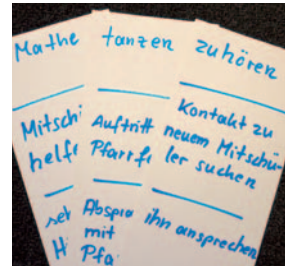 Mathe
Mitschi
helfe
set
H
tanzen
Auftritt
Pfarrfe
Abspra
mit
Pfa
zuhören
Kontakt zu
neuem Mitschü-
ler suchen
ihn ansprechen